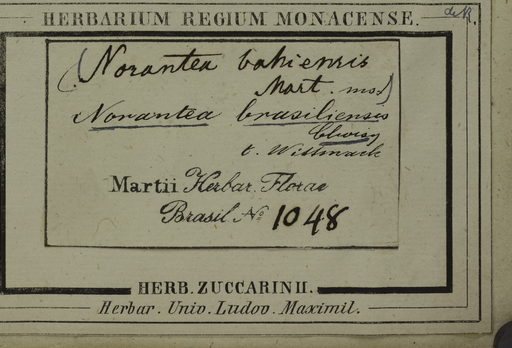 HERBARIUM REGIUM MONACENSE.
(Norantea bahiensis
Mart. ms.)
Norantea brasiliensis
Choisy
t. Wittmack
Martii Herbar. Florae
Brasil No 1048
HERB. ZUCCARINII.
Herbar. Univ. Ludov. Maximil.